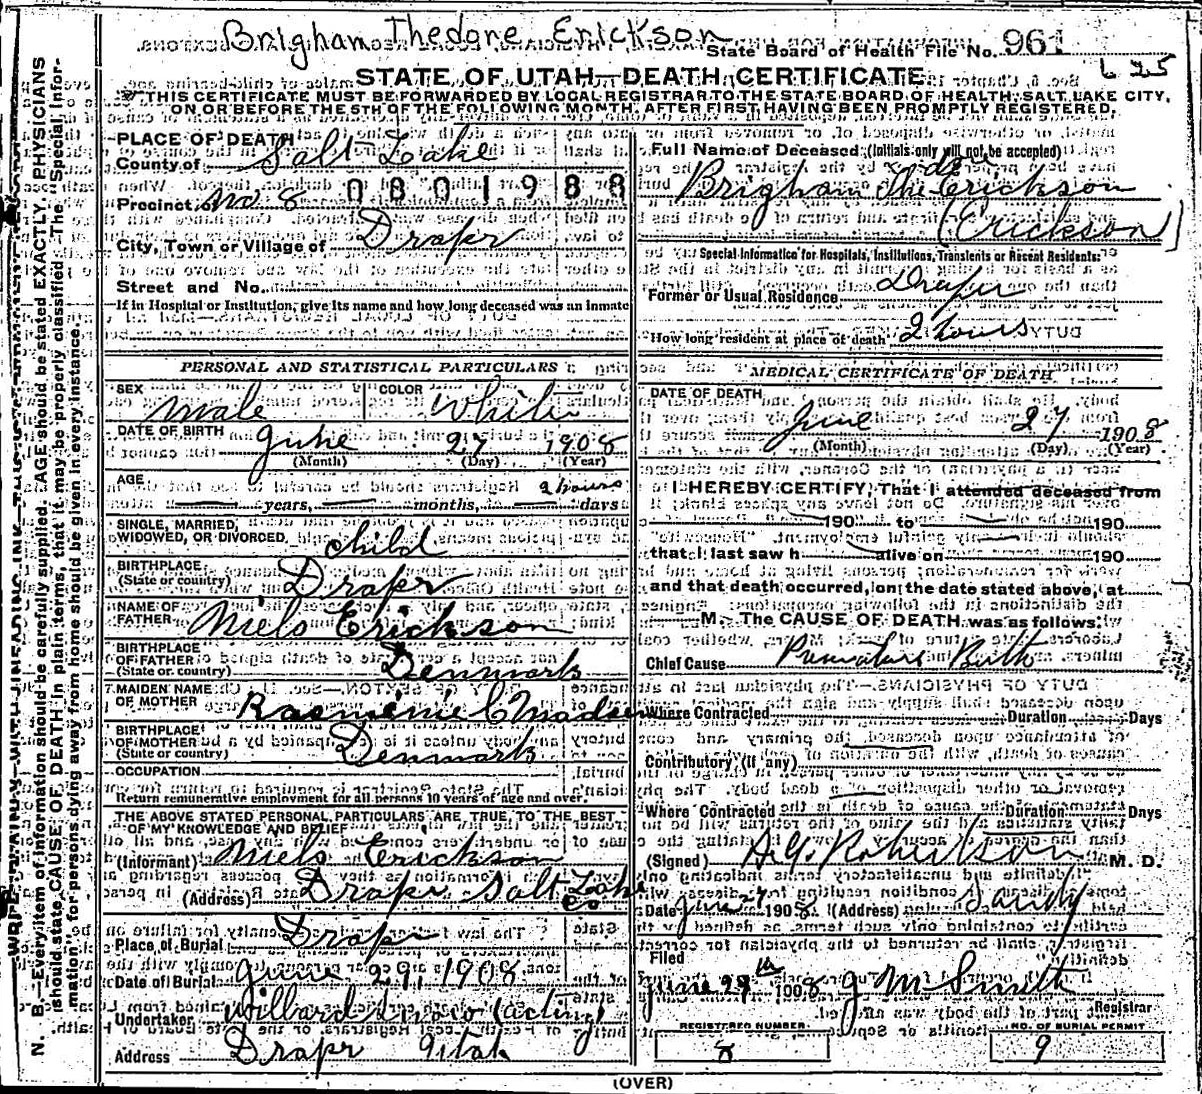 Brigham Thedore Erickson
State Board of Health File No. 961
625
STATE OF UTAH—DEATH CERTIFICATE
THIS CERTIFICATE MUST BE FORWARDED BY LOCAL REGISTRAR TO THE STATE BOARD OF HEALTH, SALT LAKE CITY,
ON OR BEFORE THE 5TH OF THE FOLLOWING MONTH, AFTER FIRST HAVING BEEN PROMPTLY REGISTERED.
N. B.—Every item of information should be carefully supplied. AGE should be stated EXACTLY. PHYSICIANS
should state CAUSE OF DEATH in plain terms, that it may be properly classified. The "Special Infor-
mation" for persons dying away from home should be given in every instance.
PLACE OF DEATH
County of Salt Lake
Precinct of No 8 0801988
City, Town or Village of Draper
Street and No.
If in Hospital or Institution, give its name and how long deceased was an inmate
PERSONAL AND STATISTICAL PARTICULARS
SEX male COLOR White
DATE OF BIRTH June 27 1908
(Month) (Day) (Year)
AGE 2 hours
years, months, days
SINGLE, MARRIED, WIDOWED, OR DIVORCED child
BIRTHPLACE (State or country) Draper
NAME OF FATHER Niels Erickson
BIRTHPLACE OF FATHER (State or country) Denmark
MAIDEN NAME OF MOTHER Rasmenie C Madsen
BIRTHPLACE OF MOTHER (State or country) Denmark
OCCUPATION
Return remunerative employment for all persons 10 years of age and over.
THE ABOVE STATED PERSONAL PARTICULARS ARE TRUE, TO THE BEST
OF MY KNOWLEDGE AND BELIEF
(Informant) Niels Erickson
(Address) Draper Salt Lake Co
Place of Burial Draper
Date of Burial June 29, 1908
Undertaker Willard (acting)
Address Draper Utah
Full Name of Deceased (Initials only will not be accepted)
Brigham Theodor Erickson
(Erickson)
Special Information for Hospitals, Institutions, Transients or Recent Residents:
Former or Usual Residence Draper
How long resident at place of death 2 hours
MEDICAL CERTIFICATE OF DEATH
DATE OF DEATH
June 27 1908
(Month) (Day) (Year)
I HEREBY CERTIFY, That I attended deceased from
190 to 190
that I last saw h alive on 190
and that death occurred, on the date stated above, at
M. The CAUSE OF DEATH was as follows:
Chief Cause Premature Birth
Where Contracted Duration Days
Contributory (if any)
Where Contracted Duration Days
(Signed) A.G. Robertson M. D.
Date June 27 1908 (Address) Sandy
Filed
June 29th 1908 J M Smith
Registrar
REGISTERED NUMBER
8
NO. OF BURIAL PERMIT
9
(OVER)